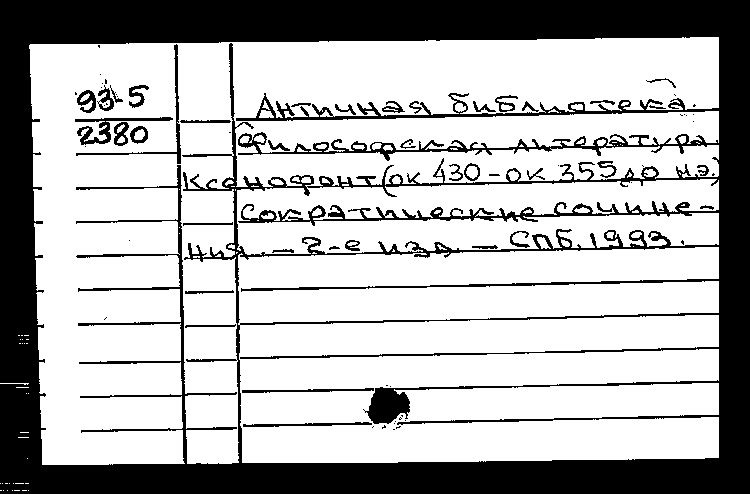 93-5 Античная библиотека.
2380 Философская литература.
Ксенофонт (ок 430-ок 355 до н.э.)
Сократические сочине-
ния. - 2-е изд. - СПб, 1993.